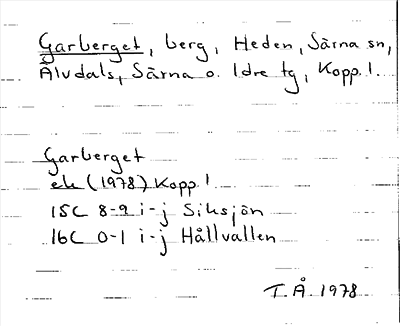 Garberget, berg, Heden, Särna sn,
Älvdals, Särna o. Idre tg, Kopp. l.
Garberget
ek (1978) Kopp l
15C 8-9 i-j Siksjön
16C 0-1 i-j Hållvallen
T.Å 1978